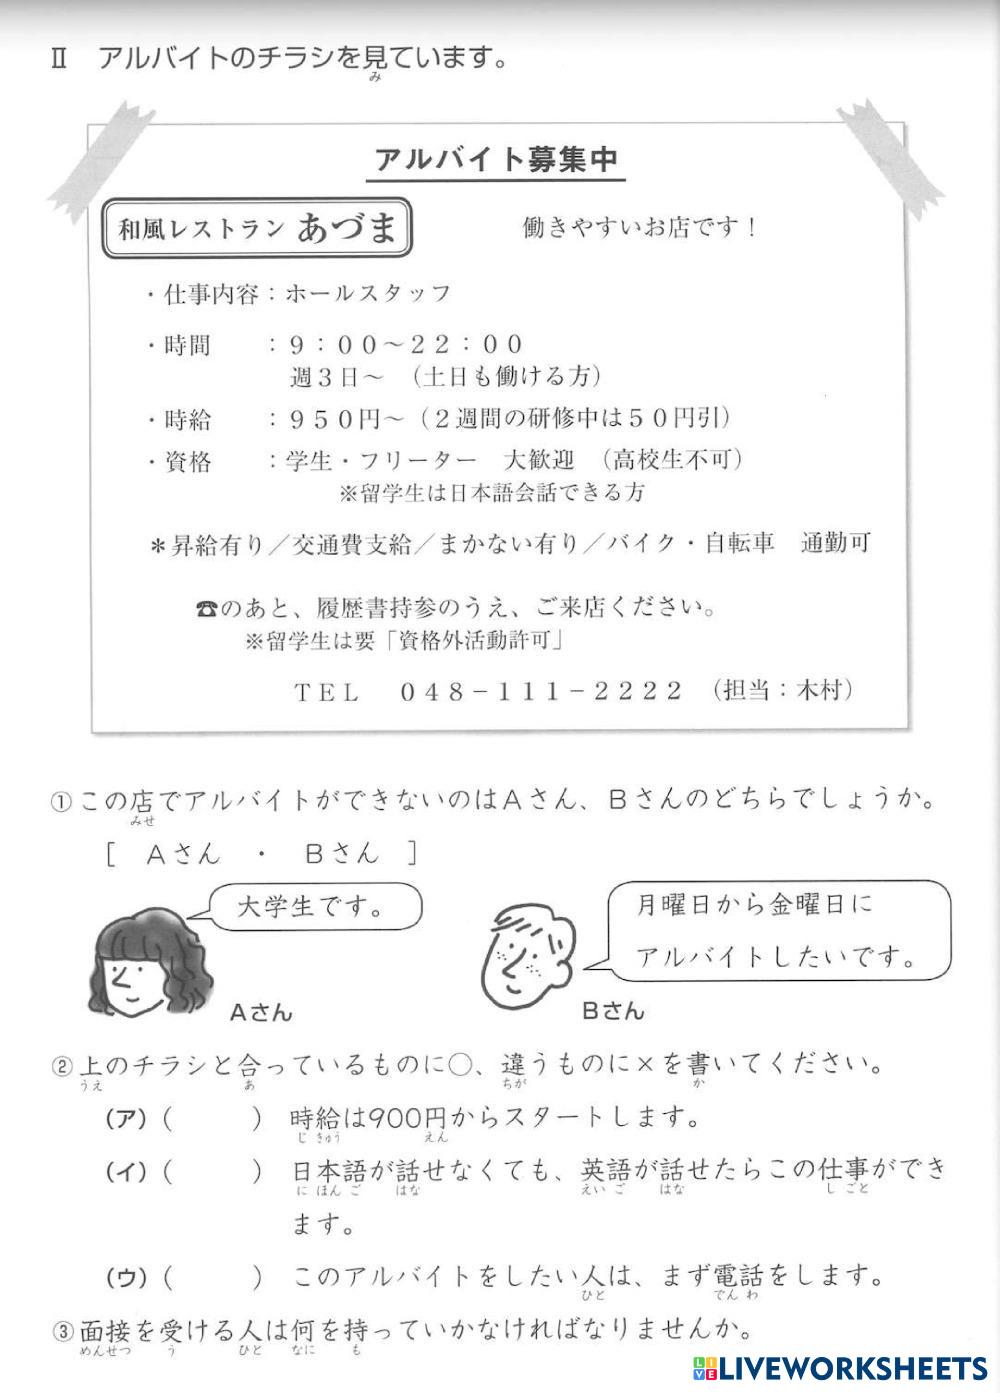 Ⅱ アルバイトのチラシを見ています。
み
アルバイト募集中
和風レストラン あづま
働きやすいお店です！
・仕事内容：ホールスタッフ
・時間 ：９：００～２２：００
週３日～ （土日も働ける方）
・時給 ：９５０円～（２週間の研修中は５０円引）
・資格 ：学生・フリーター 大歓迎 （高校生不可）
※留学生は日本語会話できる方
＊昇給有り／交通費支給／まかない有り／バイク・自転車 通勤可
☎のあと、履歴書持参のうえ、ご来店ください。
※留学生は要「資格外活動許可」
ＴＥＬ ０４８－１１１－２２２２ （担当：木村）
①この店でアルバイトができないのはＡさん、Ｂさんのどちらでしょうか。
みせ
［ Ａさん ・ Ｂさん ］
大学生です。
Ａさん
月曜日から金曜日に
アルバイトしたいです。
Ｂさん
②上のチラシと合っているものに○、違うものに×を書いてください。
うえ あ ちが か
（ア）（ ） 時給は900円からスタートします。
じ きゅう えん
（イ）（ ） 日本語が話せなくても、英語が話せたらこの仕事ができ
に ほん ご はな えい ご はな し ごと
ます。
（ウ）（ ） このアルバイトをしたい人は、まず電話をします。
ひと でん わ
③面接を受ける人は何を持っていかなければなりませんか。
めんせつ う ひと なに も
LIVEWORKSHEETS